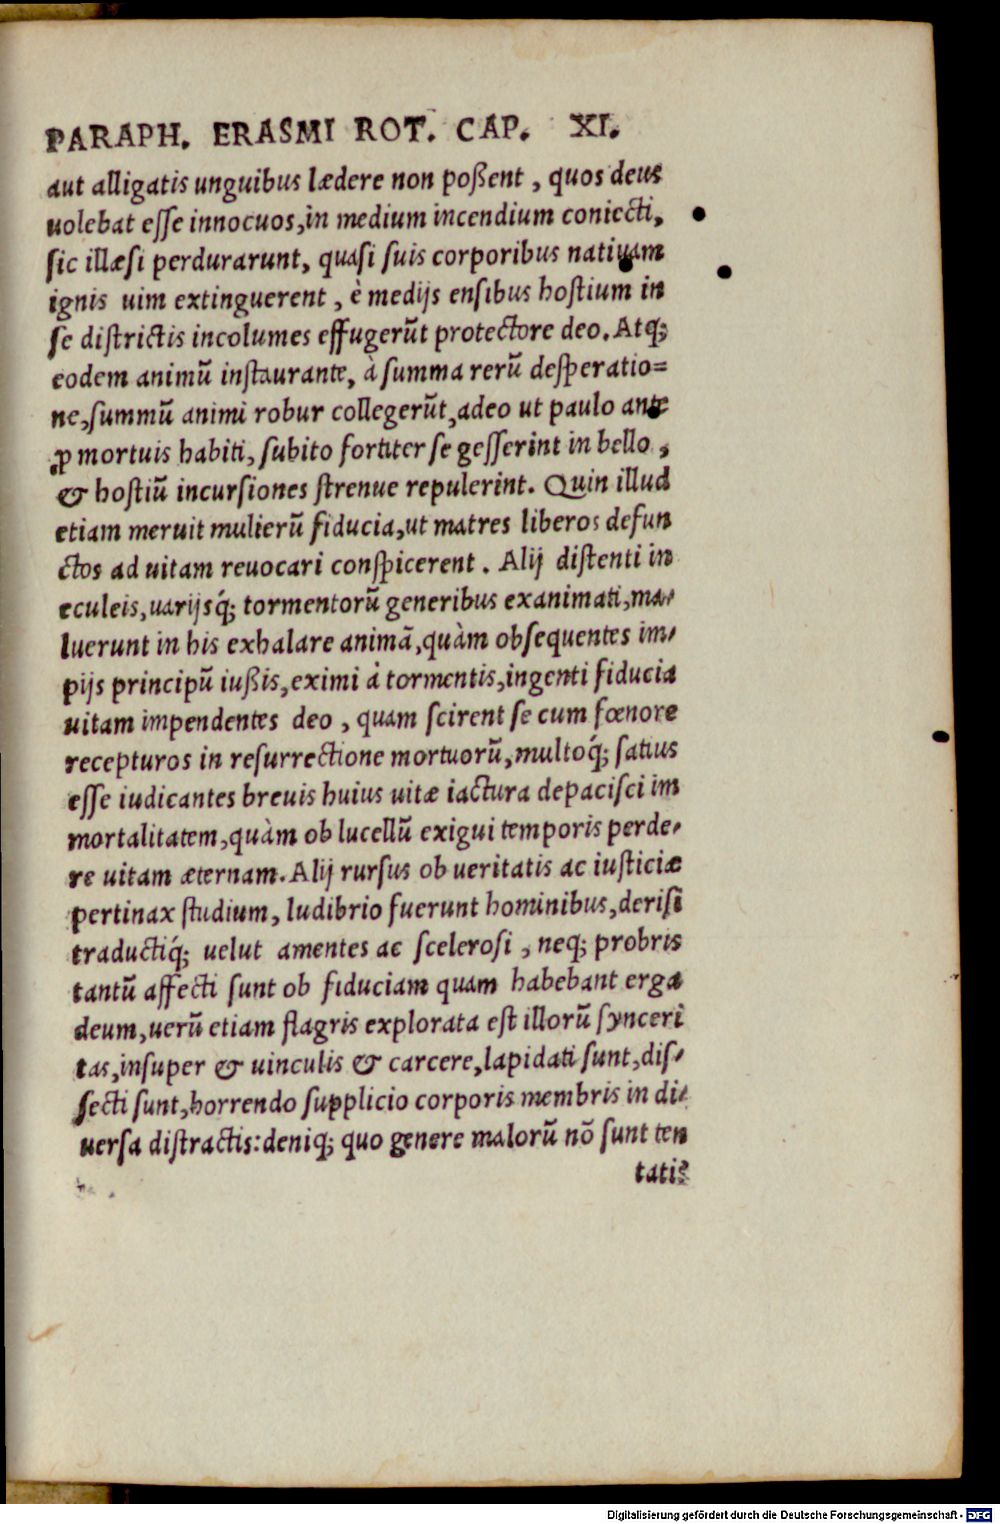 PARAPH. ERASMI ROT. CAP. XI.
aut alligatis unguibus lædere non poßent, quos deus
uolebat eſſe innocuos, in medium incendium coniecti,
ſic illæſi perdurarunt, quaſi ſuis corporibus natiuam
ignis uim extinguerent, è medijs enſibus hoſtium in
ſe diſtrictis incolumes effugerũt protectore deo. Atq;
eodem animũ inſtaurante, à ſumma rerũ deſperatio=
ne, ſummũ animi robur collegerũt, adeo ut paulo ante
ꝓ mortuis habiti, ſubito fortiter ſe geſſerint in bello,
& hoſtiũ incurſiones ſtrenue repulerint. Quin illud
etiam meruit mulierũ fiducia, ut matres liberos defun
ctos ad uitam reuocari conſpicerent. Alij diſtenti in
eculeis, uarijsq́; tormentorũ generibus exanimati, ma-
luerunt in his exhalare animã, quàm obſequentes im-
pijs principũ iußis, eximi à tormentis, ingenti fiducia
uitam impendentes deo, quam ſcirent ſe cum fœnore
recepturos in reſurrectione mortuorũ, multoq́; ſatius
eſſe iudicantes breuis huius uitæ iactura depaciſci im
mortalitatem, quàm ob lucellũ exigui temporis perde-
re uitam æternam. Alij rurſus ob ueritatis ac iuſticiæ
pertinax ſtudium, ludibrio fuerunt hominibus, deriſi
traductiq́; uelut amentes ac ſceleroſi, neq; probris
tantũ affecti ſunt ob fiduciam quam habebant erga
deum, uerũ etiam flagris explorata eſt illorũ ſynceri
tas, inſuper & uinculis & carcere, lapidati ſunt, diſ-
ſecti ſunt, horrendo ſupplicio corporis membris in di-
uerſa diſtractis: deniq; quo genere malorũ nõ ſunt ten
tati?
Digitalisierung gefördert durch die Deutsche Forschungsgemeinschaft - DFG